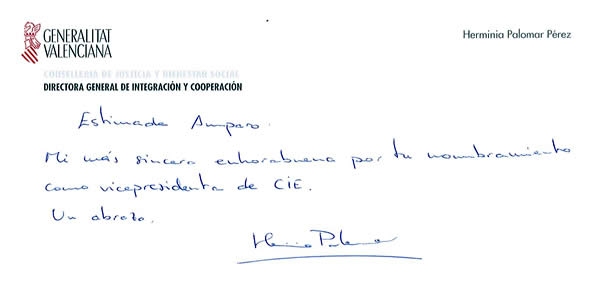 GENERALITAT
VALENCIANA
Herminia Palomar Pérez
CONSELLERIA DE JUSTICIA Y BIENESTAR SOCIAL
DIRECTORA GENERAL DE INTEGRACIÓN Y COOPERACIÓN
Estimada Amparo.
Mi más sincera enhorabuena por tu nombramiento
como vicepresidenta de CIE.
Un abrazo.